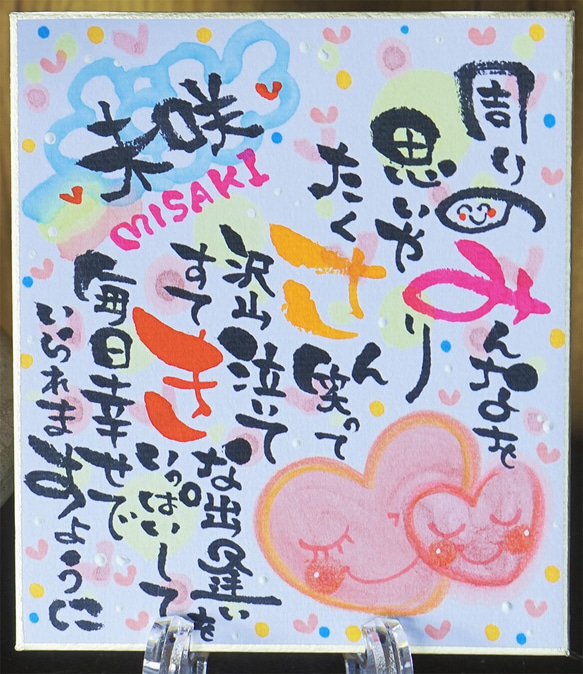 未咲
MISAKI
周りの
みんなを
思いやり
たくさん笑って
沢山泣いて
すてきな出逢いを
いっぱいして
毎日幸せで
いられますように